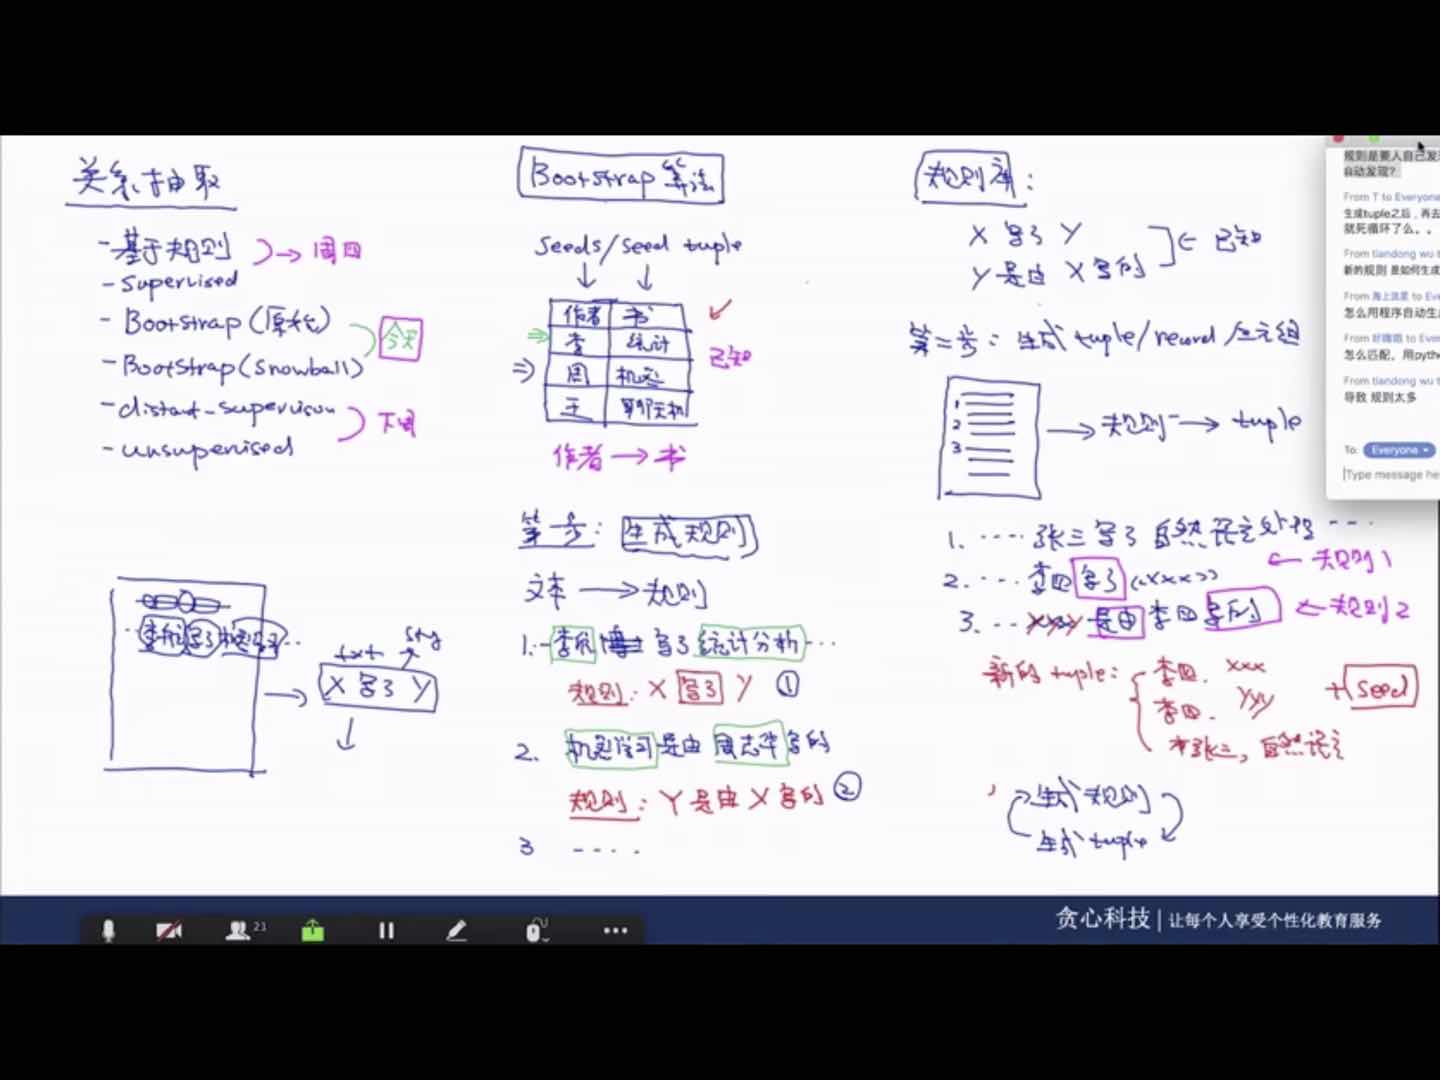 关系抽取
- 基于规则 → 周四
- supervised
- Bootstrap(原始)
今天
- Bootstrap(snowball)
- distant-supervison
下周
- unsupervised
李航 写了
txt
str
→ X 写了 Y
Bootstrap 算法
seeds/seed tuple
作者 书
李 统计
周 机器
王 聊天机
已知
作者 → 书
第一步: 生成规则
文本 → 规则
1. 李航 写了 统计分析 ...
规则: X 写了 Y ①
2. 机器学习 是由 周志华 写的
规则: Y 是由 X 写的 ②
3 ....
规则库:
X 写了 Y
Y 是由 X 写的
← 已知
第二步: 生成 tuple/record/三元组
1
2
3
→ 规则 → tuple
1. .... 张三 写了 自然语言处理 ....
2. .... 李四 写了 《xxx》 ← 规则1
3. ... yyy 是由 李四 写的 ← 规则2
新的 tuple: 李四. xxx
李四. yyy
张三, 自然语言
+ seed
生成规则
生成 tuple
规则是要人自己发
自动发现?
From T to Everyone
生成tuple之后，再去
就死循环了么。。
From tiandong wu t
新的规则 是如何生成
From 海上流星 to Eve
怎么用程序自动生
to Ever
怎么匹配，用pyth
From tiandong wu t
导致 规则太多
To: Everyone
Type message he
21
贪心科技 | 让每个人享受个性化教育服务